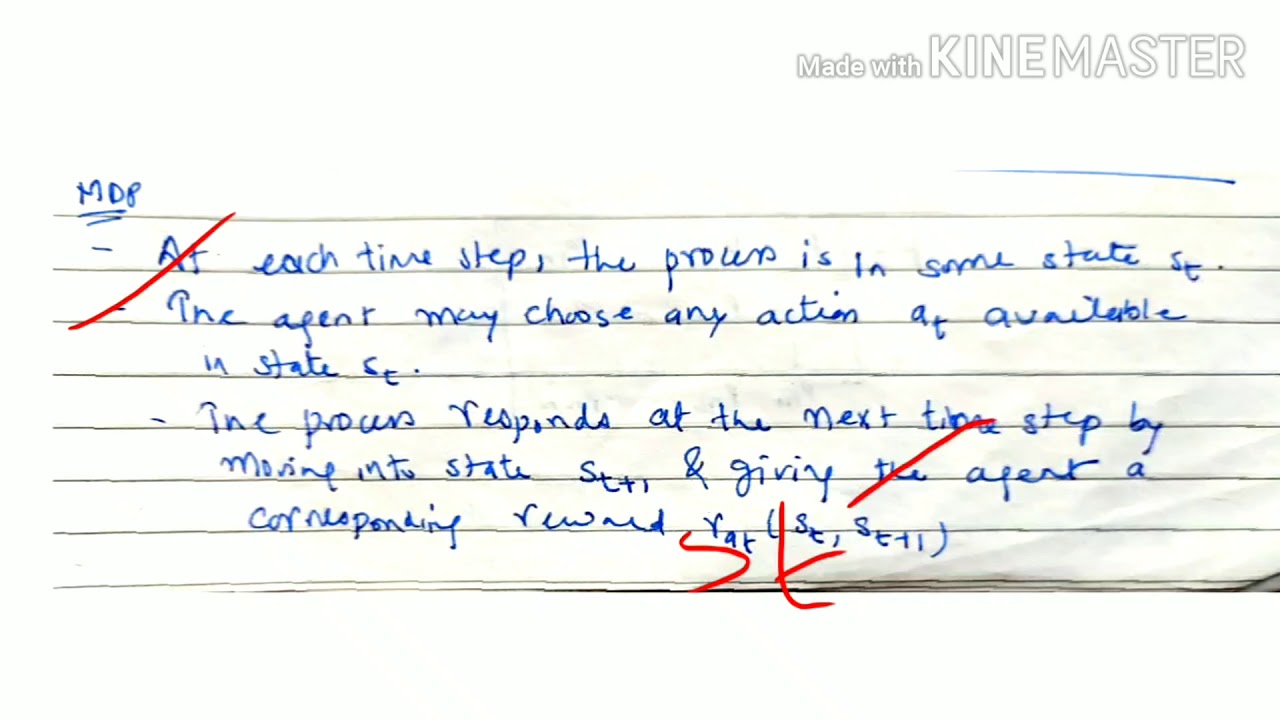 Made with KINEMASTER
MDP
- At each time step, the process is in some state st.
- The agent may choose any action at available
in state st.
- The process responds at the next time step by
moving into state st+1 & giving the agent a
corresponding reward rat (st, st+1)
st